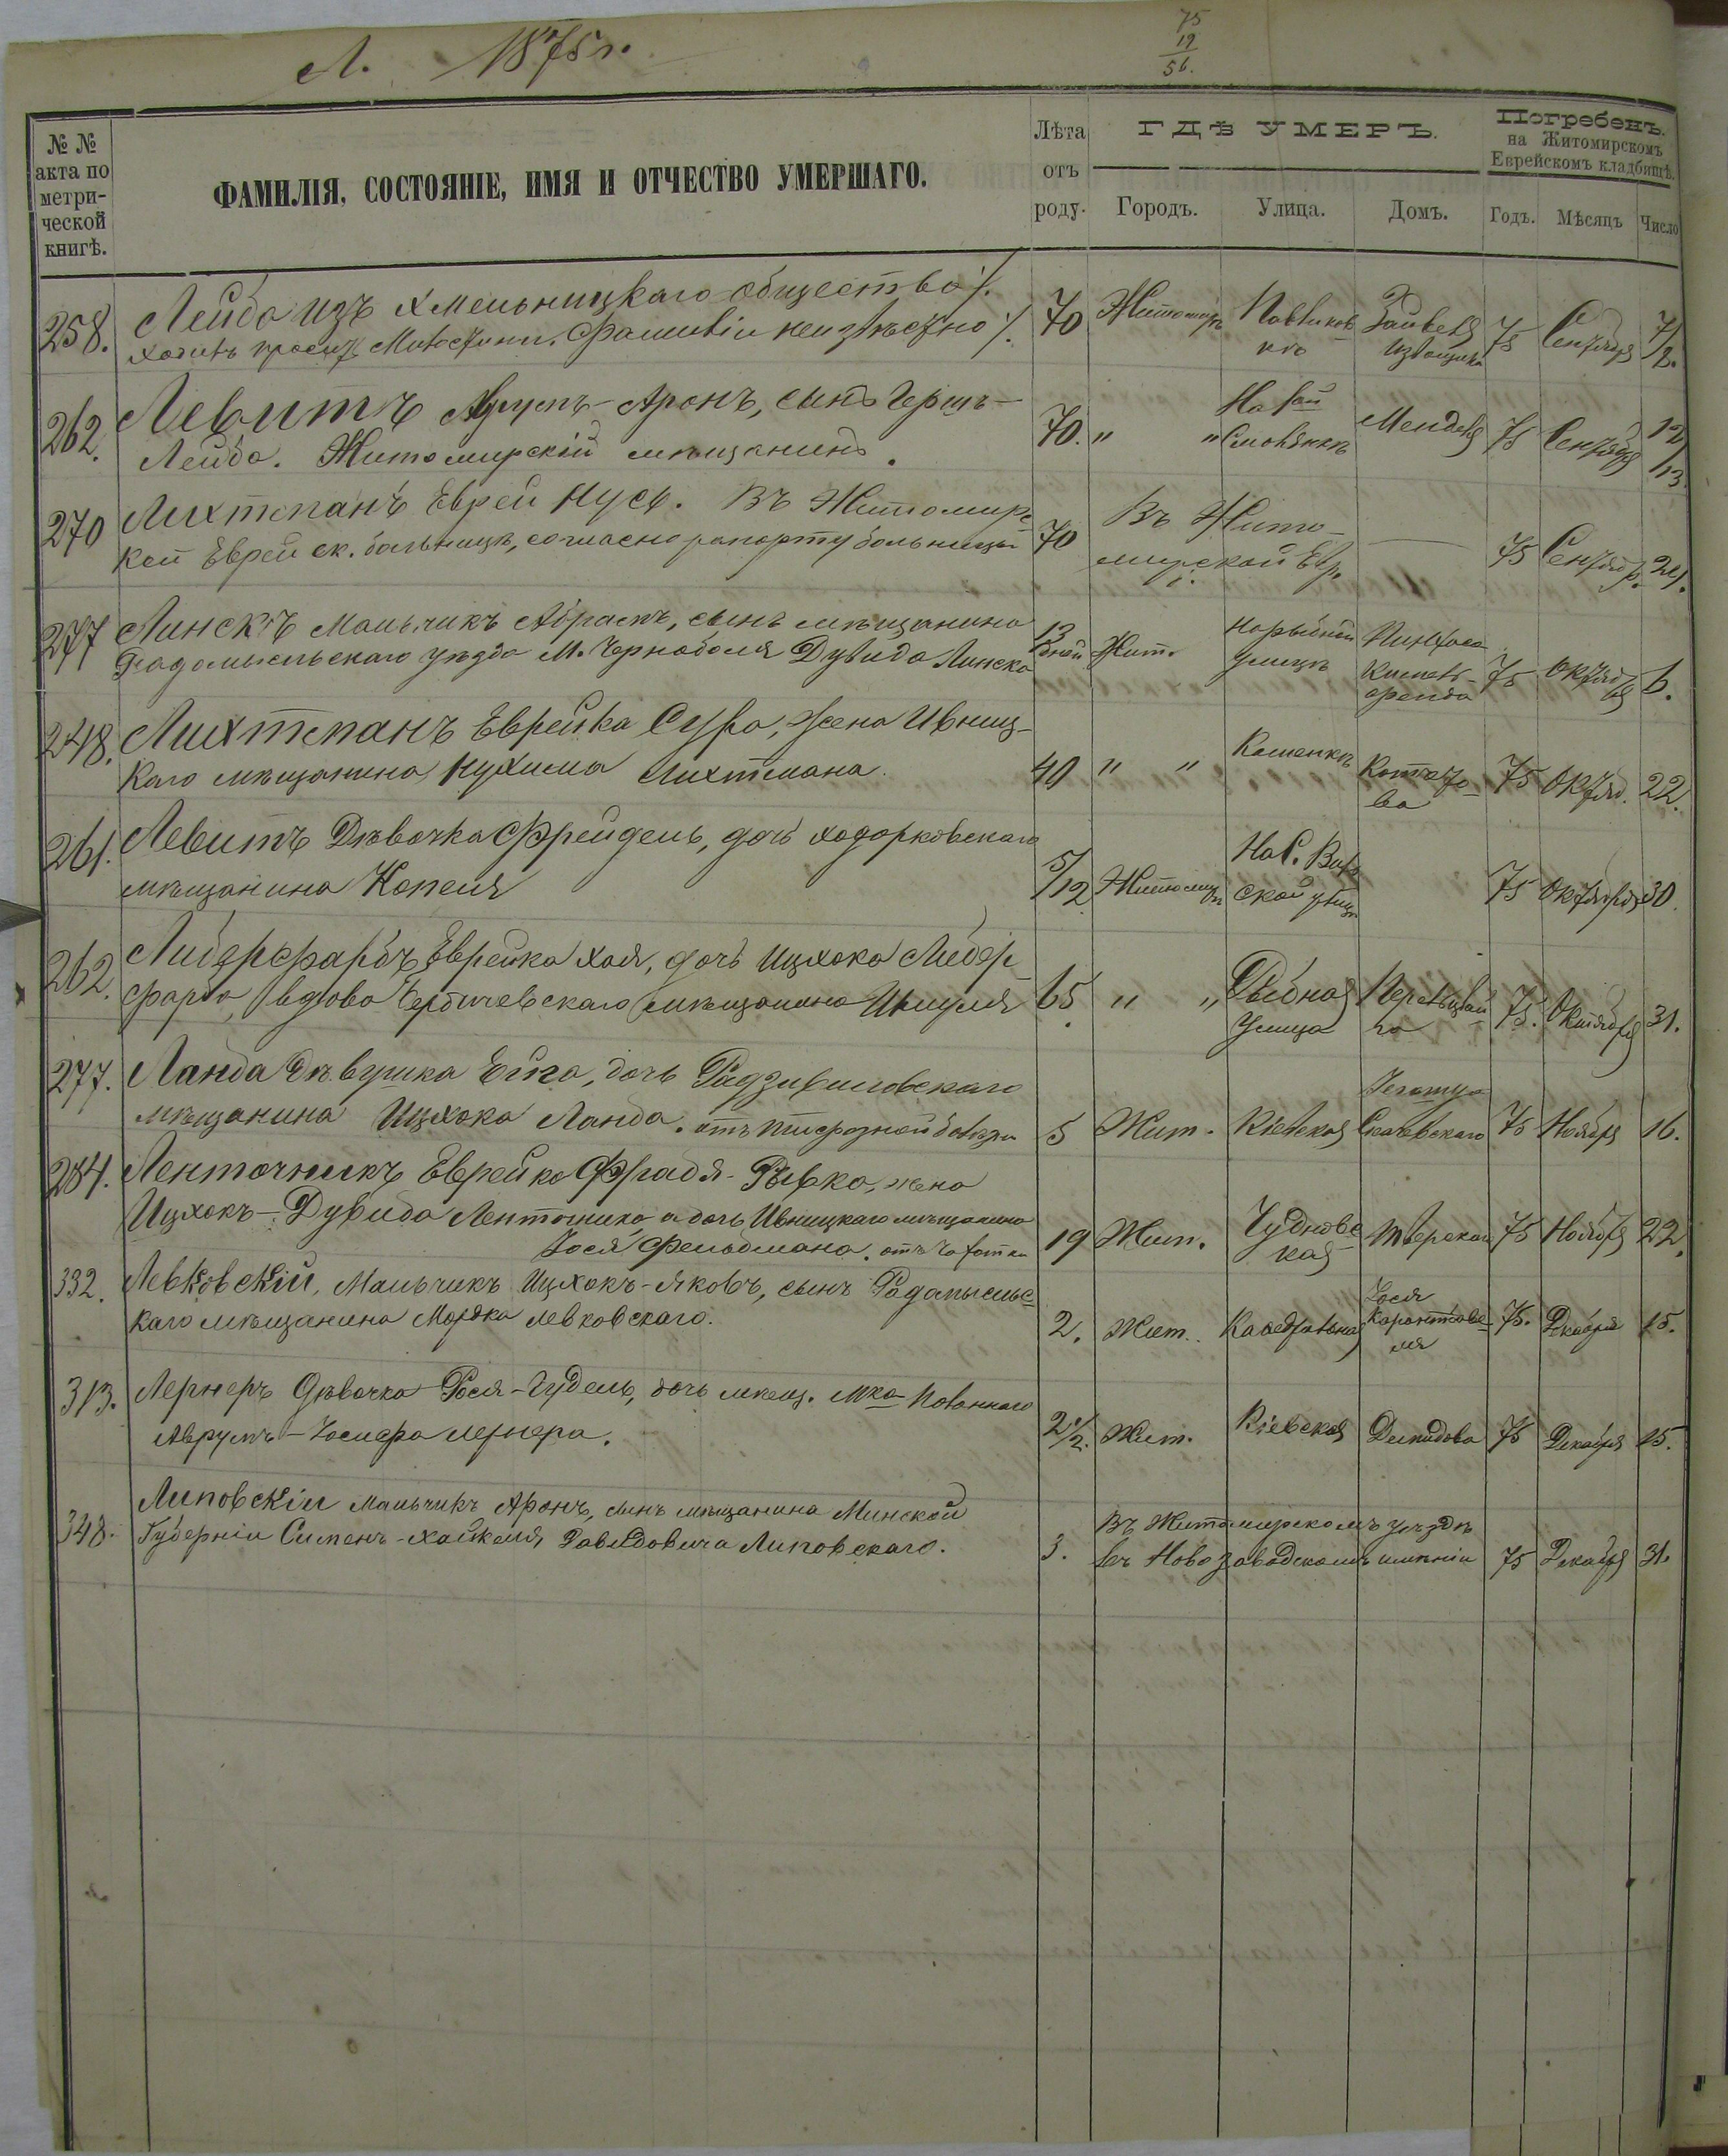 Л. 1875 г.
75
19
56.
№ №
акта по
метри-
ческой
книгѣ.
ФАМИЛІЯ, СОСТОЯНІЕ, ИМЯ И ОТЧЕСТВО УМЕРШАГО.
Лѣта
отъ
роду.
ГДѢ УМЕРЪ.
Городъ. Улица. Домъ.
Погребенъ.
на Житомирскомъ
Еврейскомъ кладбищѣ.
Годъ. Мѣсяцъ Число
258. Лейба изъ Хмельницкаго общества 70 Житомиръ 75 Сентября 7/8.
Фамиліи неизвѣстно извощика
262. Левитъ Аврумъ-Аронъ, сынъ Гершъ- 70. " " Мендель 75 Сентября 12/13.
Лейба. Житомирскій мѣщанинъ.
270 Лихтманъ Еврей Нусь. Въ Житомирс- 70 Въ Жито- — 75 Сентябр. 21.
кой Еврейск. больницѣ, согласно рапорту больницы мирской Евр.
277 Линскъ Мальчикъ Абрамъ, сынъ мѣщанина 13 дней Жит. На рыбной Пинхаса 75 Октября 6.
Радомысльскаго уѣзда М. Чернобыля Дувида Линска улицѣ
248. Лихтманъ Еврейка Сура, жена Ивниц- 40 " " Каменкѣ 75 Октяб. 22.
каго мѣщанина Нухима Лихтмана.
261. Левитъ Дѣвочка Фрейдель, дочь ходорковскаго 5/12 Житомиръ 75 Октября 30.
мѣщанина Копеля
262. Либерфарбъ Еврейка Хая, дочь Ицхока Либер- 65. " " Рыбная 75. Октября 31.
фарба, вдова Бердичевскаго мѣщанина Шмуля улица
277. Ланда дѣвушка Ейга, дочь Радзивиловскаго 5 Жит. Кіевская 75 Ноября 16.
мѣщанина Ицхока Ланда.
284. Ленточникъ Еврейка Фрадя-Рывка, жена 19 Жит. Чуднов- 75 Ноября 22.
Ицхокъ-Дувида Ленточника, а дочь Ивницкаго мѣщанина ская
Іося Фельдмана.
332. Левковскій, Мальчикъ Ицхокъ-Яковъ, сынъ Радомысльс- 2. Жит. Кафедральная Іося 75. Декабря 15.
каго мѣщанина Мордка Левковскаго.
313. Лернеръ Дѣвочка Рося-Гудель, дочь мѣщ. М-ка 2½. Жит. Кіевская Демидова 75 Декабря 15.
Аврумъ-Іосифа Лернера.
348. Липовскій Мальчикъ Аронъ, сынъ мѣщанина Минской 3. Въ Житомирскомъ уѣздѣ 75 Декабря 31.
Губерніи Сименъ-Хаикеля Давидовича Липовскаго. въ Новозаводскомъ имѣніи